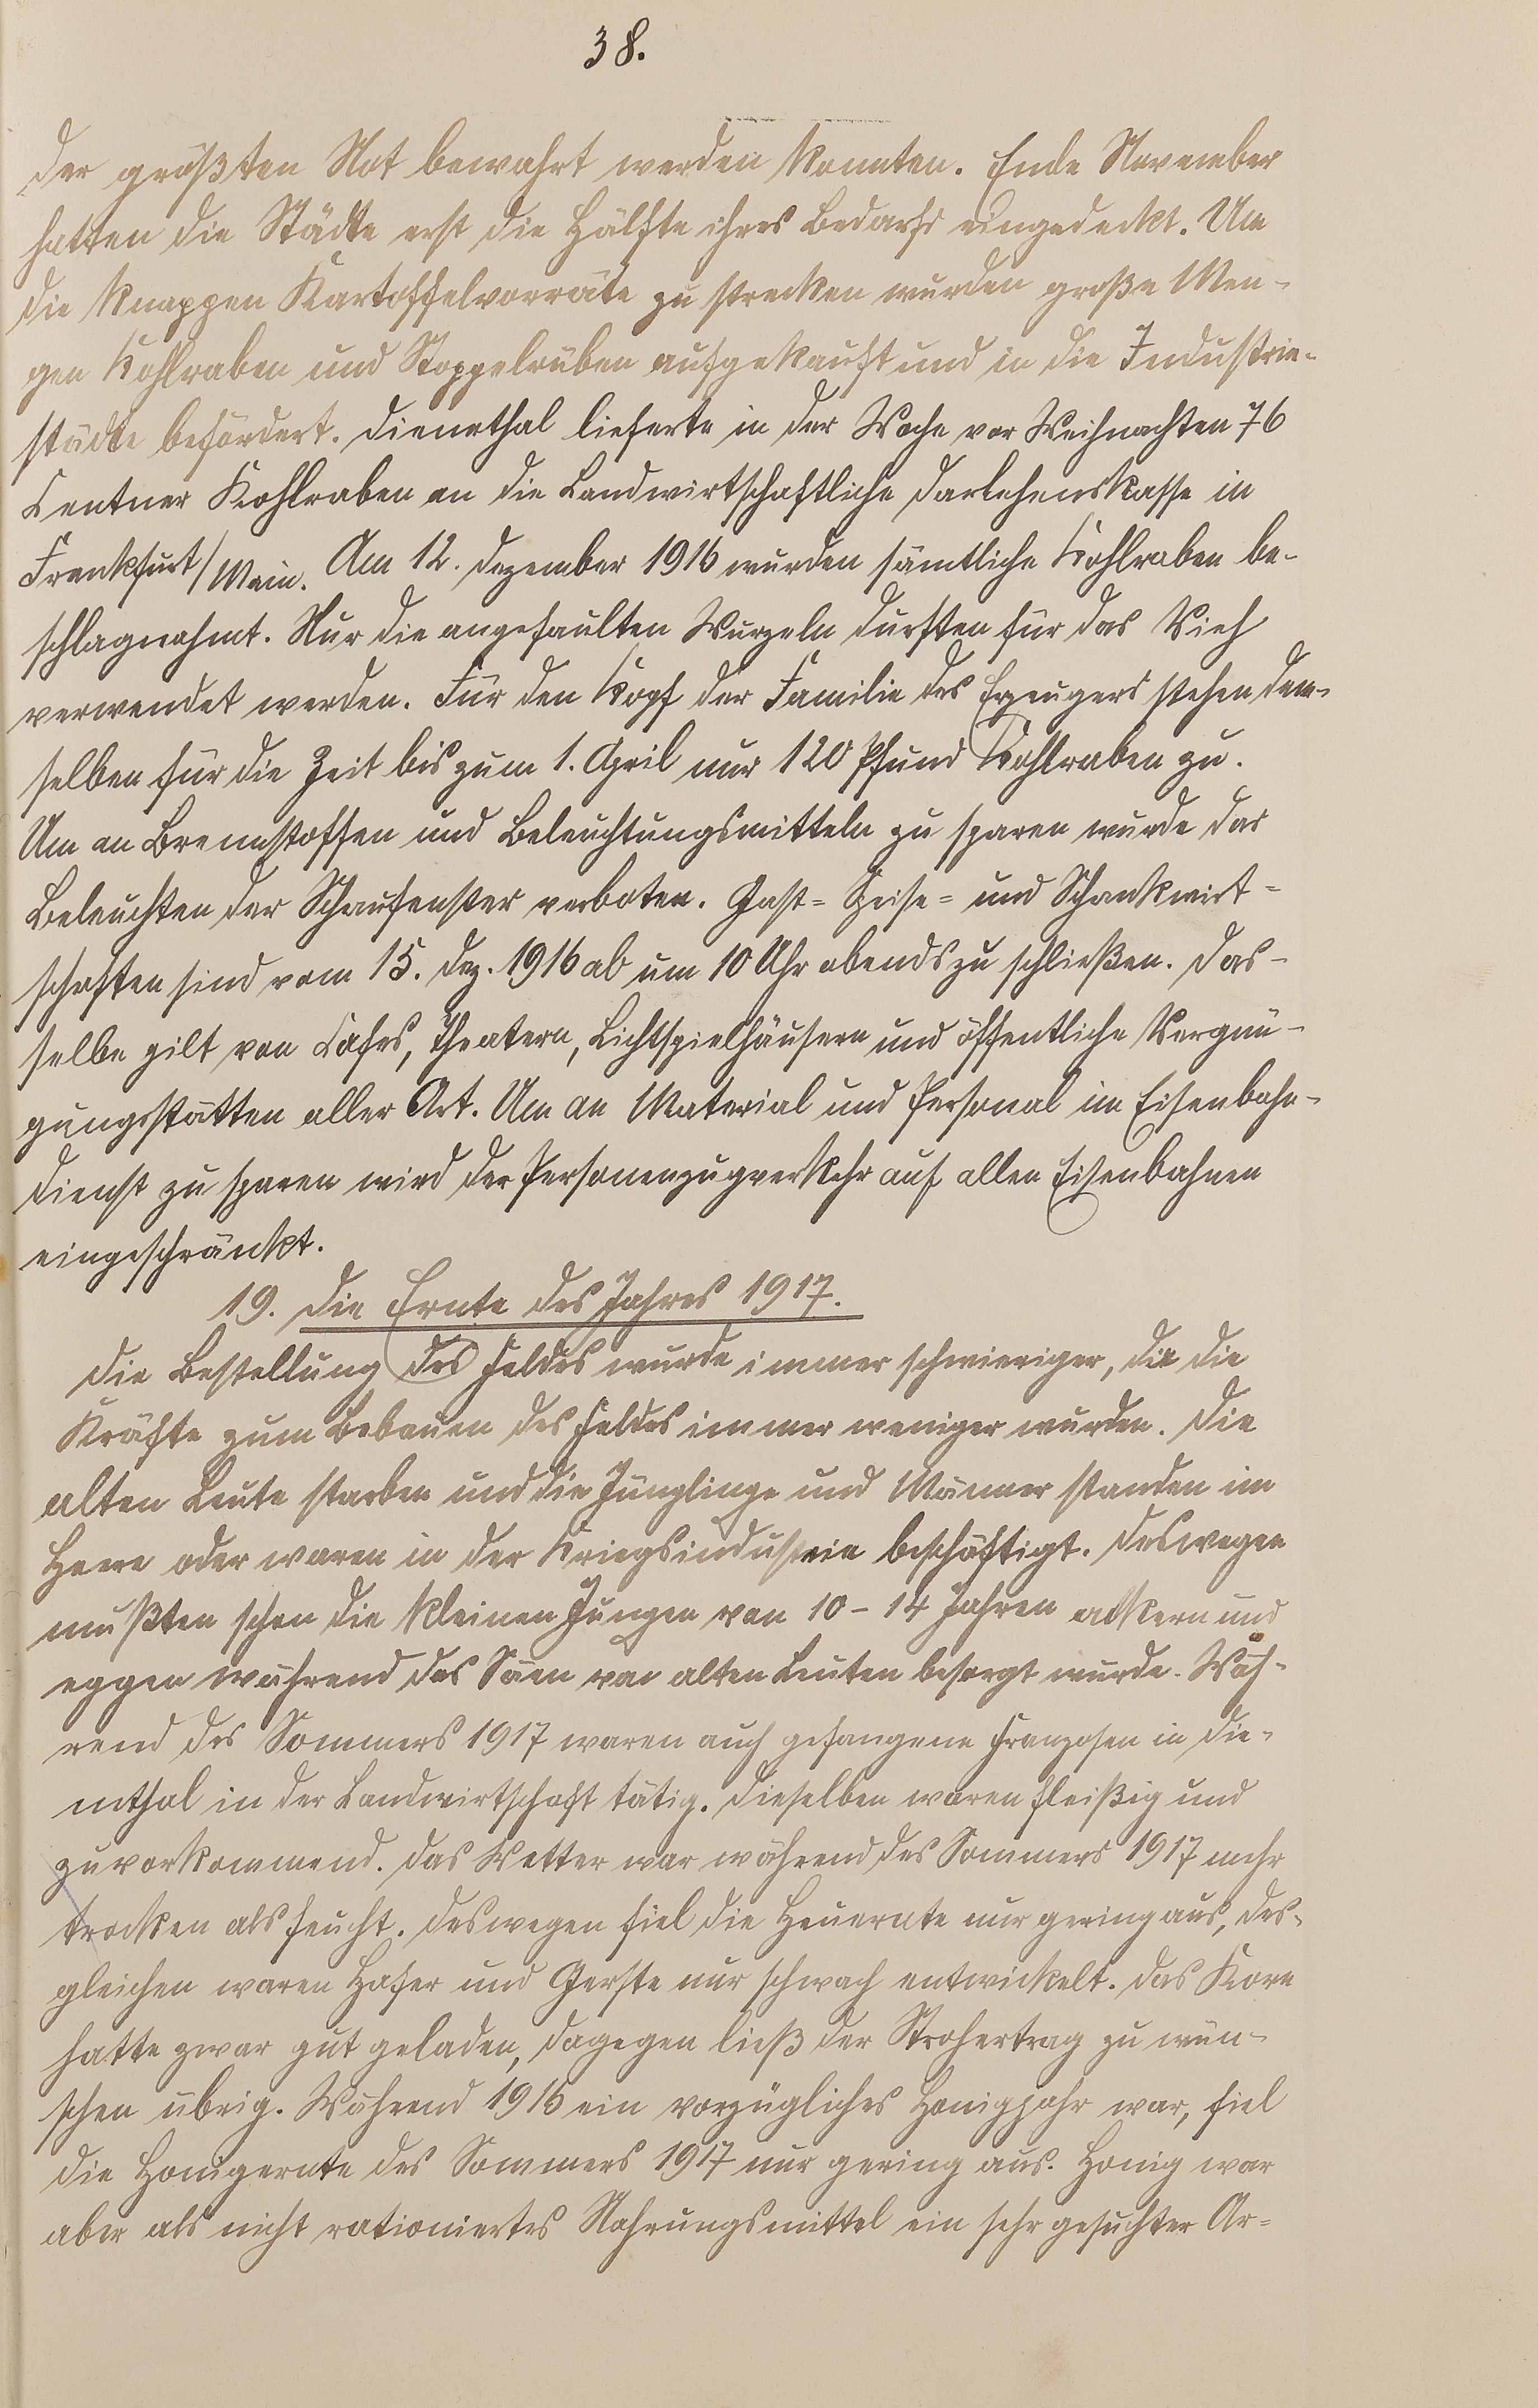 38.
der größten Not bewahrt werden konnten. Ende November
hatten die Städte erst die Hälfte ihres Bedarfs eingedeckt. Um
die knappen Kartoffelvorräte zu strecken wurden große Men-
gen Kohlraben und Stoppelrüben aufgekauft und in die Industrie-
städte befördert. Dienethal lieferte in der Woche vor Weihnachten 76
Centner Kohlraben an die Landwirtschaftliche Darlehenskasse in
Frankfurt/Main. Am 12. Dezember 1916 wurden sämtliche Kohlraben be-
schlagnahmt. Nur die angefaulten Wurzeln durften für das Vieh
verwendet werden. Für den Kopf der Familie des Erzeugers stehen dem-
selben für die Zeit bis zum 1. April nur 120 Pfund Kohlraben zu.
Um an Brennstoffen und Beleuchtungsmitteln zu sparen wurde das
Beleuchten der Schaufenster verboten. Gast- Speise- und Schankwirt-
schaften sind vom 15. Dez. 1916 ab um 10 Uhr abends zu schließen. Das-
selbe gilt von Cafes, Theatern, Lichtspielhäusern und öffentliche Vergnü-
gungsstätten aller Art. Um an Material und Personal im Eisenbahn-
dienst zu sparen wird der Personenzugverkehr auf allen Eisenbahnen
eingeschränkt.
19. Die Ernte des Jahres 1917.
Die Bestellung des Feldes wurde immer schwieriger, da die
Kräfte zum Bebauen des Feldes immer weniger wurden. Die
alten Leute starben und die Jünglinge und Männer standen im
Heere oder waren in der Kriegsindustrie beschäftigt. Deswegen
mußten schon die kleinen Jungen von 10-14 Jahren ackern und
eggen während das Säen von alten Leuten besorgt wurde. Wäh-
rend des Sommers 1917 waren auch gefangene Franzosen in Die-
nethal in der Landwirtschaft tätig. Dieselben waren fleißig und
zuvorkommend. Das Wetter war während des Sommers 1917 mehr
trocken als feucht. Deswegen fiel die Heuernte nur gering aus, des-
gleichen waren Hafer und Gerste nur schwach entwickelt. Das Korn
hatte zwar gut geladen, dagegen ließ der Strohertrag zu wün-
schen übrig. Während 1916 ein vorzügliches Honigjahr war, fiel
die Honigernte des Sommers 1917 nur gering aus. Honig war
aber als nicht rationiertes Nahrungsmittel ein sehr gesuchter Ar-